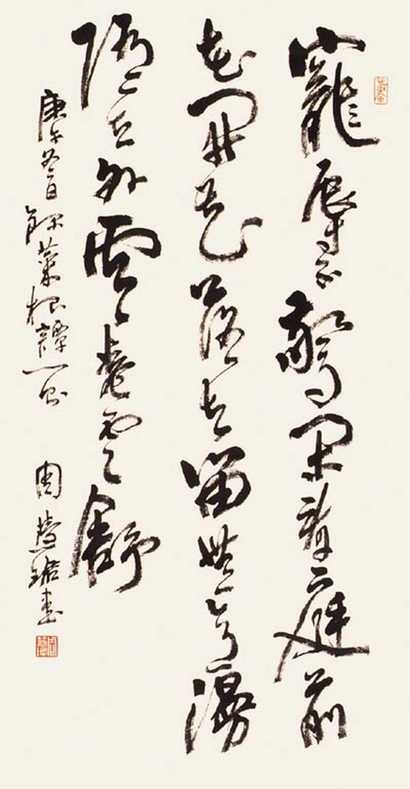 寵辱不驚閑看庭前
花開花落去留無意漫
隨天外雲卷雲舒
庚午日錄菜根譚一則 周慧珺書